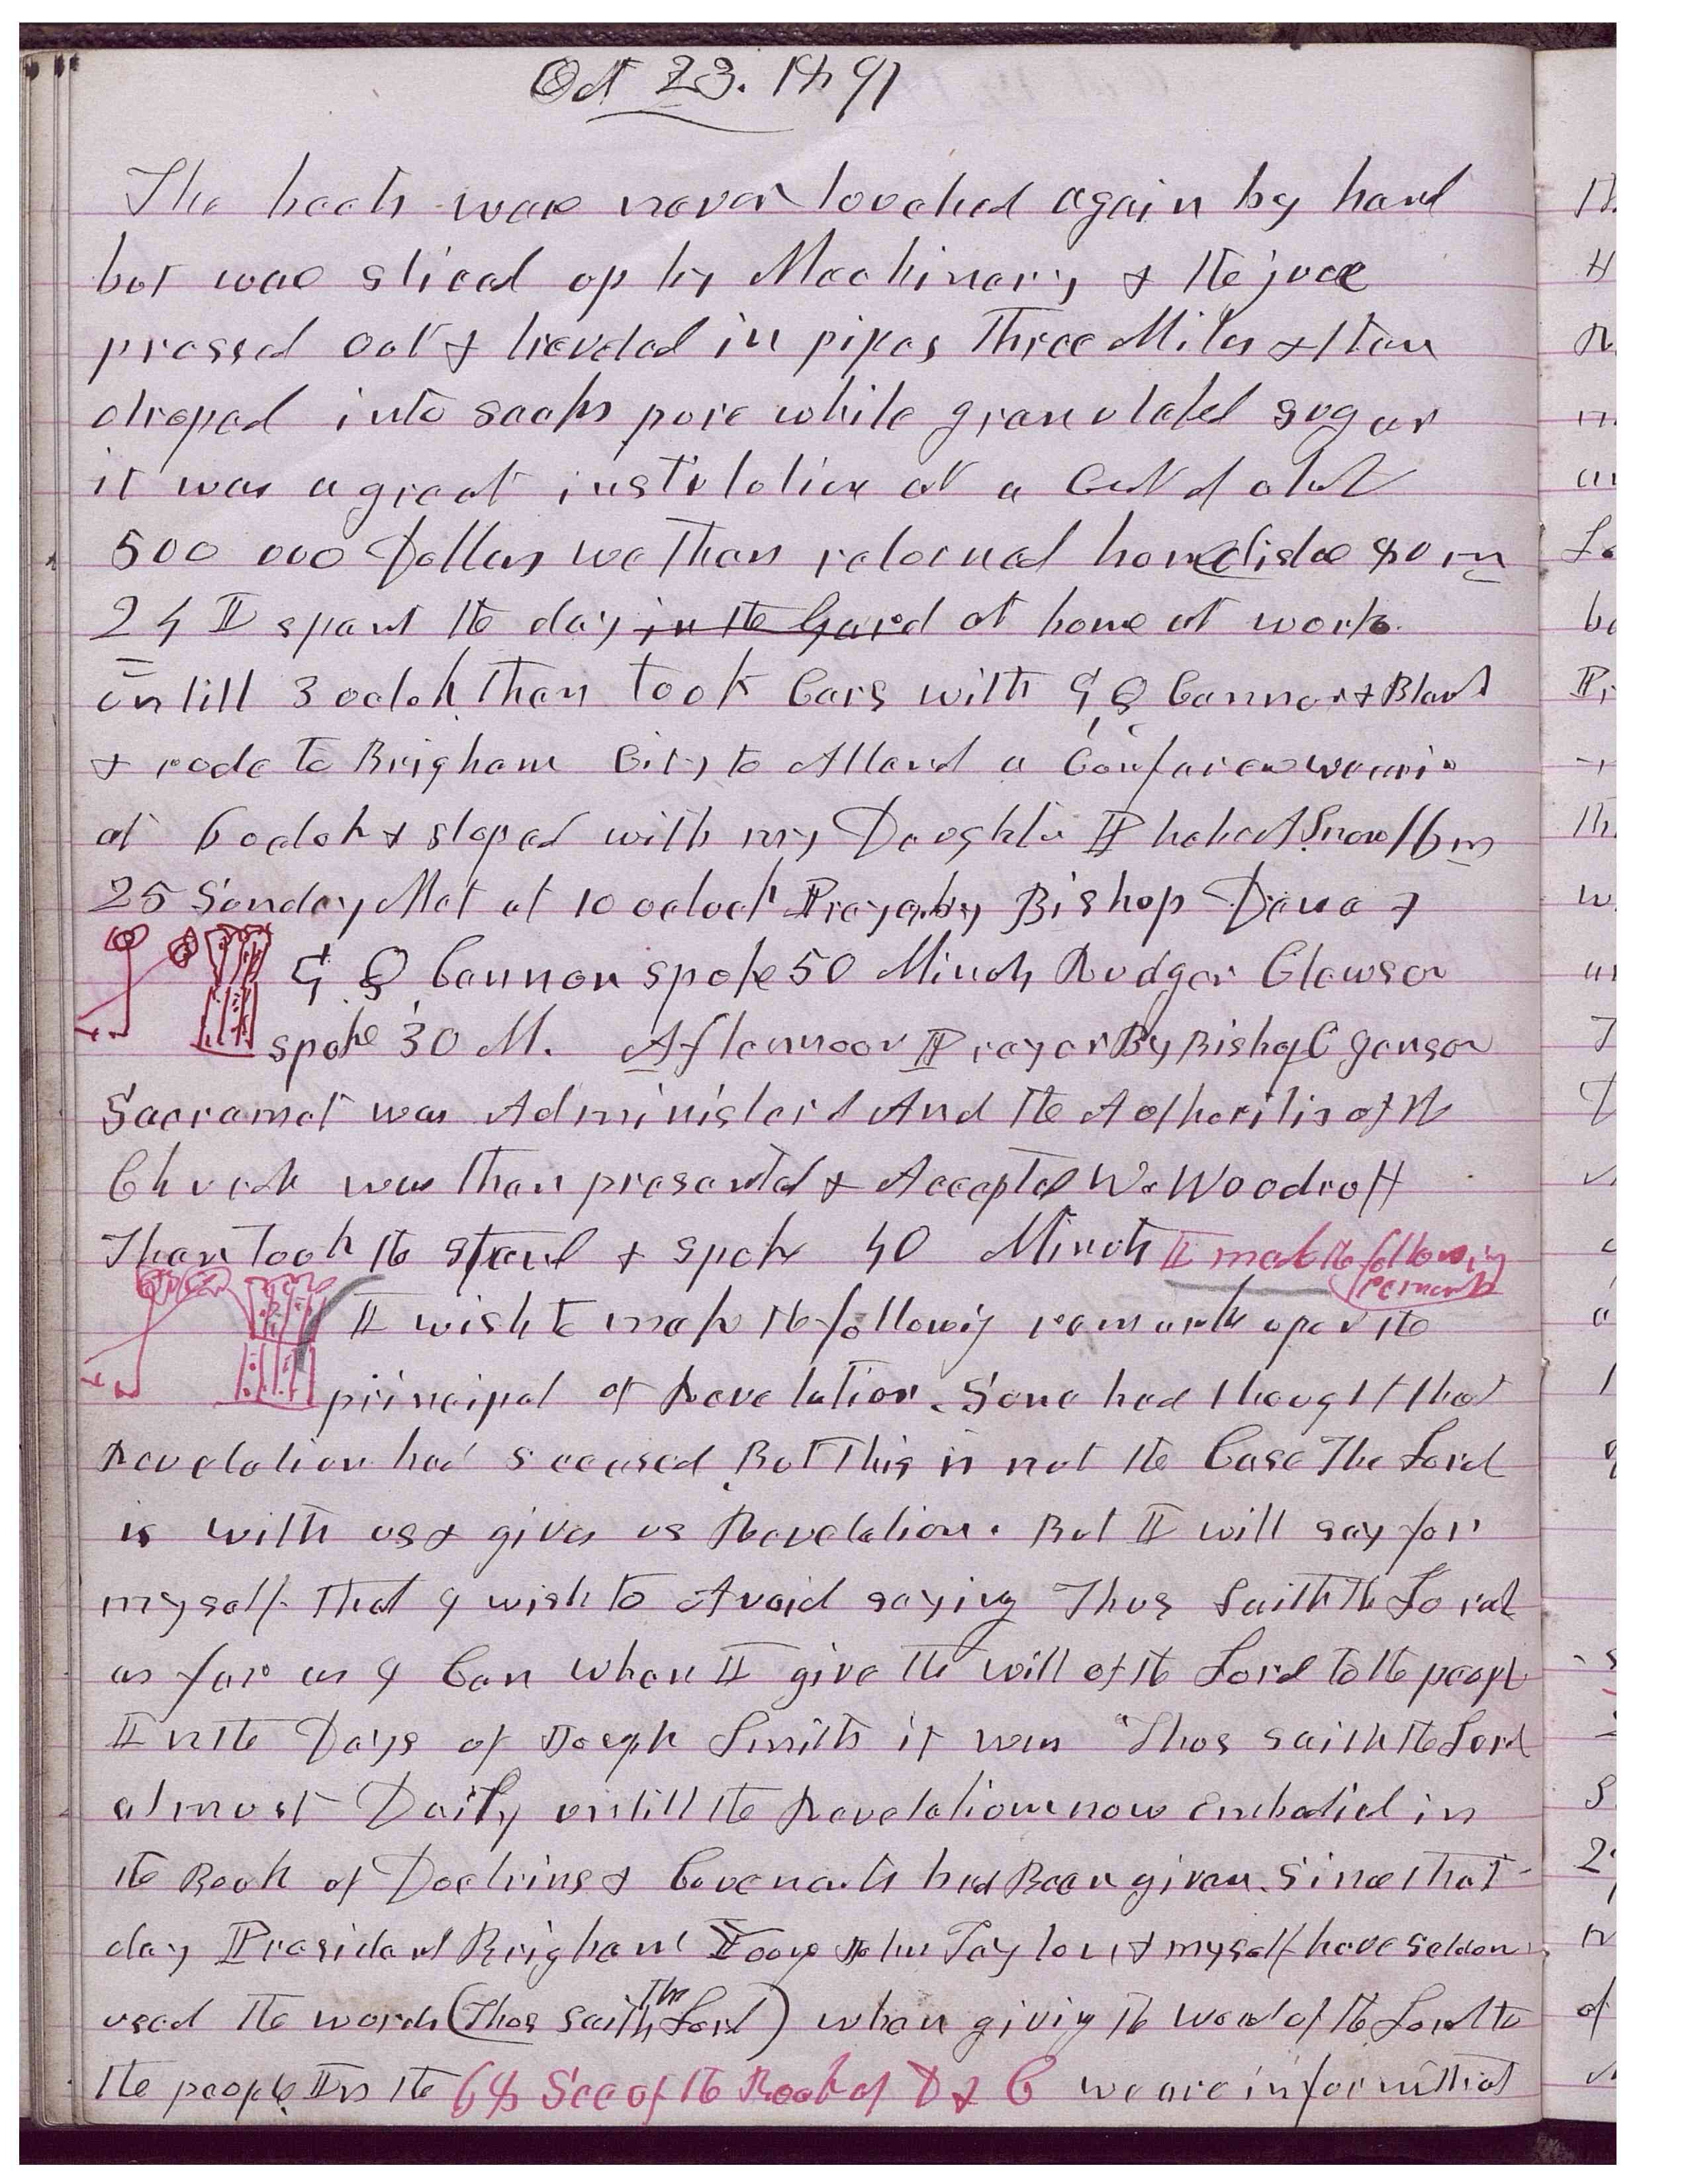 Oct 23. 1891
The beets was never touched again by hand
but was sliced up by Machinery & the juce
pressed out & traveled in pipes Three Miles & then
droped into sacks pure white granulated sugar
it was a great institution at a Cost of about
500 000 Dollars we Then returned home distance 80 m
24 I spent the day in the Gard at home at work
until 3 oclok Then took Cars with G Q Cannon &
& rode to Brigham City to Attend a Conference
at 6 oclok & stoped with my Daughter Phebe A Snow 16 m
25 Sunday Met at 10 oclock Prayer by Bishop &
G Q Cannon spoke 50 Minuts Rudger Clawson
spoke 30 M. Afternoon Prayer By Bishop C Jenson
Sacramet was Administerd And the Authorities of the
Church was then presented & Accepted W. Woodruff
Then took the stand & spoke 40 Minuts I made the following
remarks
I wish to make the following remarks upon the
principal of Revelation. Some had thought that
Revelation had seceased But This is not the Case The Lord
is with us & gives us Revelation. But I will say for
myself that I wish to Avoid saying Thus Saith The Lord
as far as I Can when I give the will of the Lord to the people
In the Days of Joseph Smith it was "Thus saith the Lord
almost Daily untill the Revelations now embodied in
the Book of Doctrins & Covenants had Been given. Since that
day President Brigham Young John Taylor & myself have seldom
used the words (Thus saith The Lord) when giving the word of the Lord to
the people. In the 68 Sec of the Book of D & C we are informed that